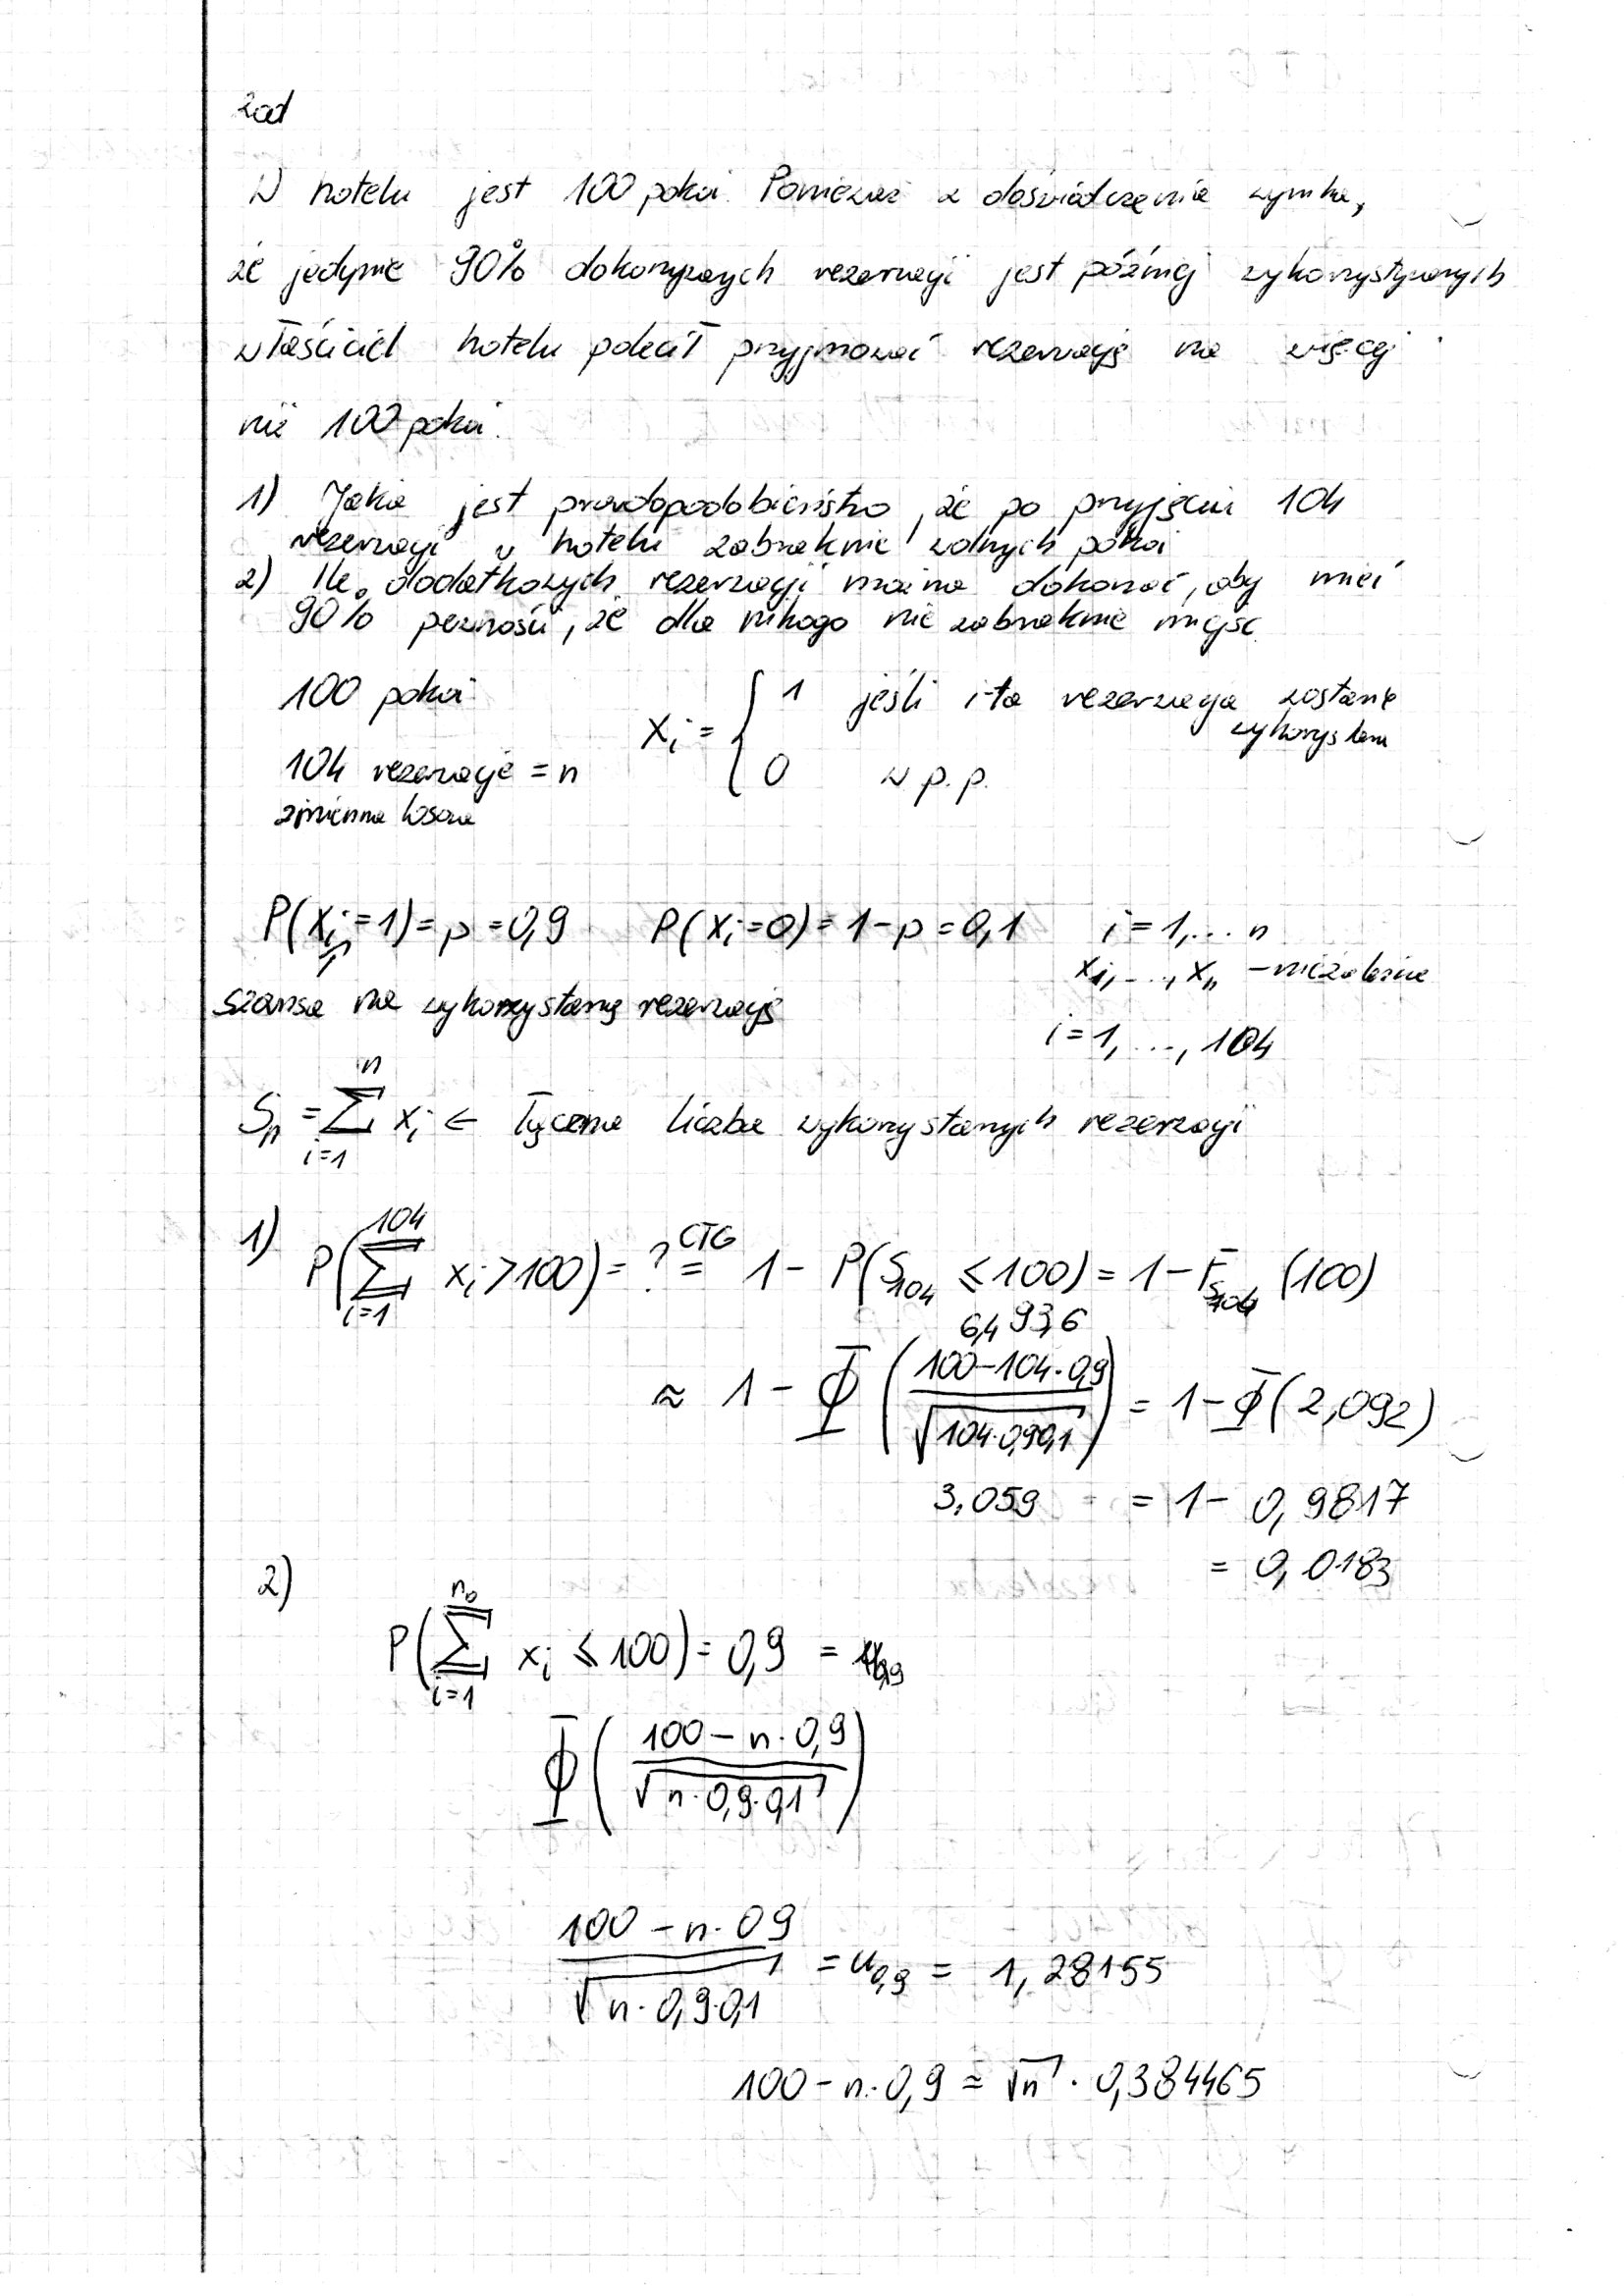 Zad
W hotelu jest 100 pokoi. Ponieważ z doświadczenia wynika,
że jedynie 90% dokonywanych rezerwacji jest później wykorzystywanych
właściciel hotelu polecił przyjmować rezerwację na więcej
niż 100 pokoi.
1) Jakie jest prawdopodobieństwo, że po przyjęciu 104
rezerwacji w hotelu zabraknie wolnych pokoi
2) Ile dodatkowych rezerwacji można dokonać, aby mieć
90% pewności, że dla nikogo nie zabraknie miejsc.
100 pokoi
104 rezerwacje = n
zmienna losowa
X_i = { 1 jeśli i-ta rezerwacja zostanie wykorzystana
0 w p.p.
P(X_i=1)=p=0,9 P(X_i=0)=1-p=0,1 i=1,...n
X_1,...,X_n - niezależne
szansa na wykorzystanę rezerwację
i=1,...,104
S_n = ∑_{i=1}^{n} X_i ← łączna liczba wykorzystanych rezerwacji
1) P(∑_{i=1}^{104} X_i > 100) = ? CTG = 1 - P(S_104 ≤ 100) = 1 - F_{S_104}(100)
6,4 93,6
≈ 1 - Φ((100-104·0,9)/√(104·0,9·0,1)) = 1 - Φ(2,092)
3,059 = 1 - 0,9817
= 0,0183
2)
P(∑_{i=1}^{n_0} X_i ≤ 100) = 0,9 =
Φ((100-n·0,9)/√(n·0,9·0,1))
(100-n·09)/√(n·0,9·0,1) = u_{0,9} = 1,28155
100-n·0,9 = √n · 0,384465